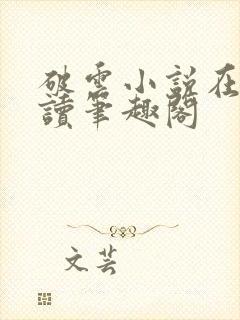 破雲小說在
讀筆趣閣
文芸